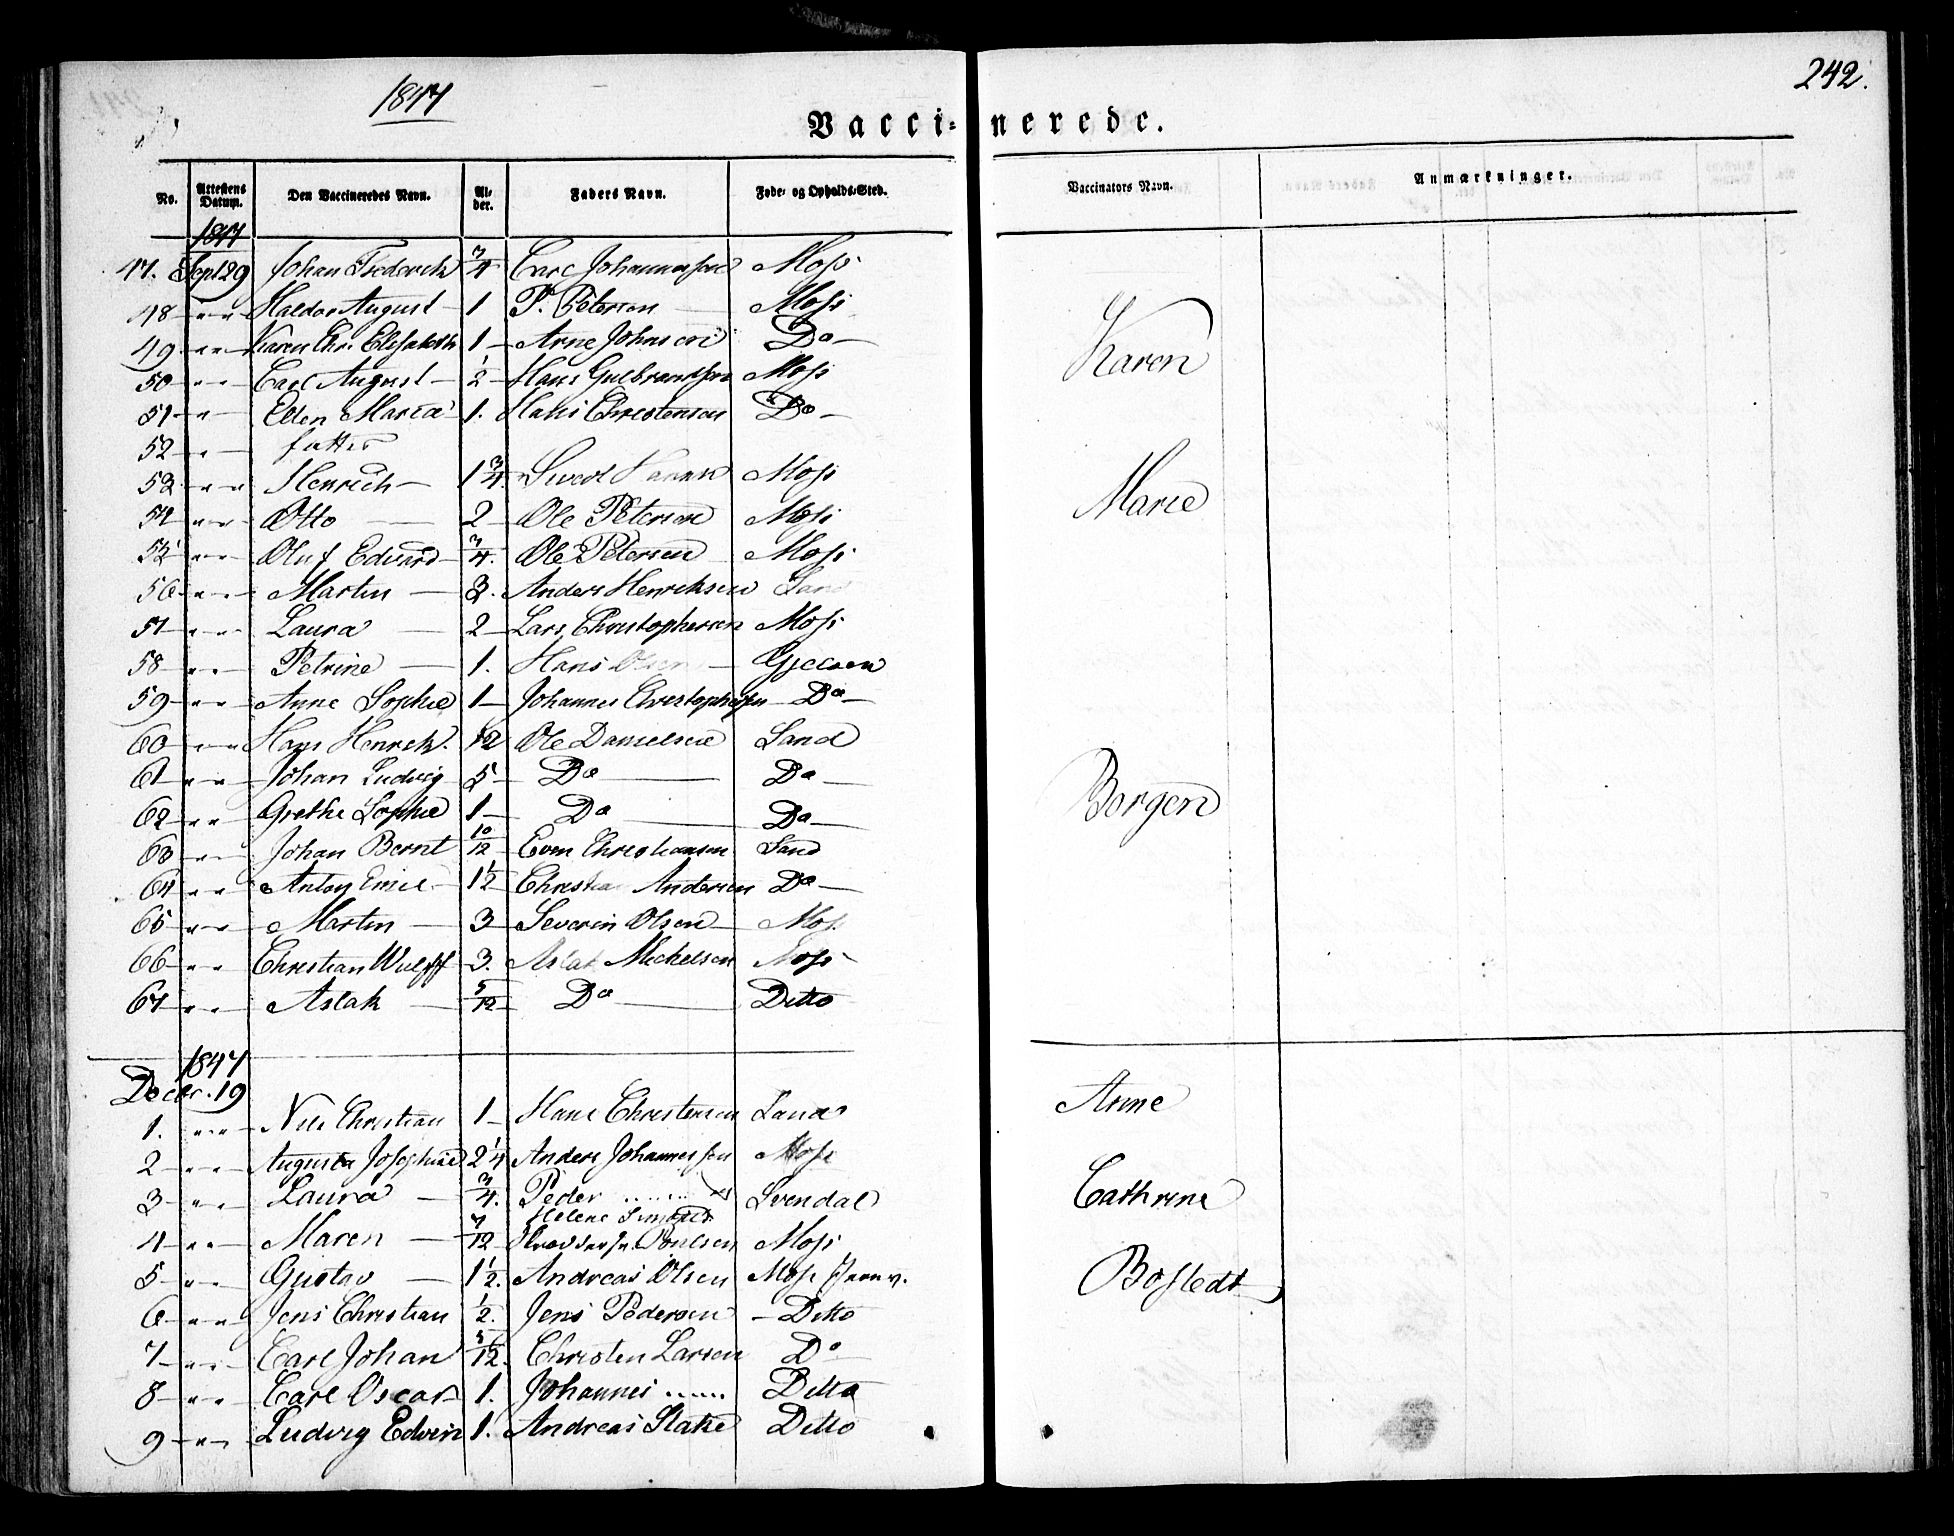 1847
242.
Vaccinerede.
No. Attestens Datum. Den Vaccineredes Navn. Alder. Faders Navn. Føde- og Opholds-Sted. Vaccinators Navn. Anmærkninger.
1847
47. Sept 29 Johan Frederik 3/4 Carl Johannessen Moss
48 " " Haldor August 1 P. Petersen Moss
49 " " Karen Chr. Elisabeth 1 Arne Johnsen Do
50 " " Carl August 1/2 Hans Gulbrandsen Moss
51 " Ellen Maria 1. Hans Christensen Do
52 " fattes
53 " " Henrich 1 3/4 Moss
54 " " Otto 2 Ole Petersen Moss
55 " " Oluf Edvard 3/4. Ole Petersen Moss
56 " " Martin 3. Anders Henriksen Land
57 " " Laura 2 Lars Christophersen Moss
58 " " Petrine 1. Hans Olsen
59 " " Anne Sophie 1 Johannes Christophersen Do
60 " " Hans Henrik. Ole Danielsen Land
61 " " Johan Ludvig 5 Do Do
62 " " Grethe Sophie 1 Do Do
63 " " Johan Bernt 10/12 Even Christiansen Land
64 " " Anton Emil 1 1/2 Christian Andersen Do
65 " " Martin 3 Severin Olsen Moss
66 " " Christian Wulff 3. Aslak Michelsen Moss
67 " " Aslak 5/12 Do Ditto
Karen
Marie
Borgen
1847
Decbr. 19
1. " " Nils Christian 1 Hans Christensen Land
2 " " Augusta Josephine 2 1/4 Anders Johannessen Moss
3 " " Laura 3/4. Peder ...... Svendal
4 " " Maren 7/12 Helene Poulsen Moss
5 " " Gustav 1 1/2. Andreas Olsen Moss
6 " " Jens Christian 1/2. Jens Pedersen Ditto
7 " " Carl Johan 5/12. Christen Larsen Do
8 " " Carl Oscar 1. Johannes ...... Ditto
9 " " Ludvig Edvin 1. Andreas Ditto
Anne
Cathrine
Bostedt